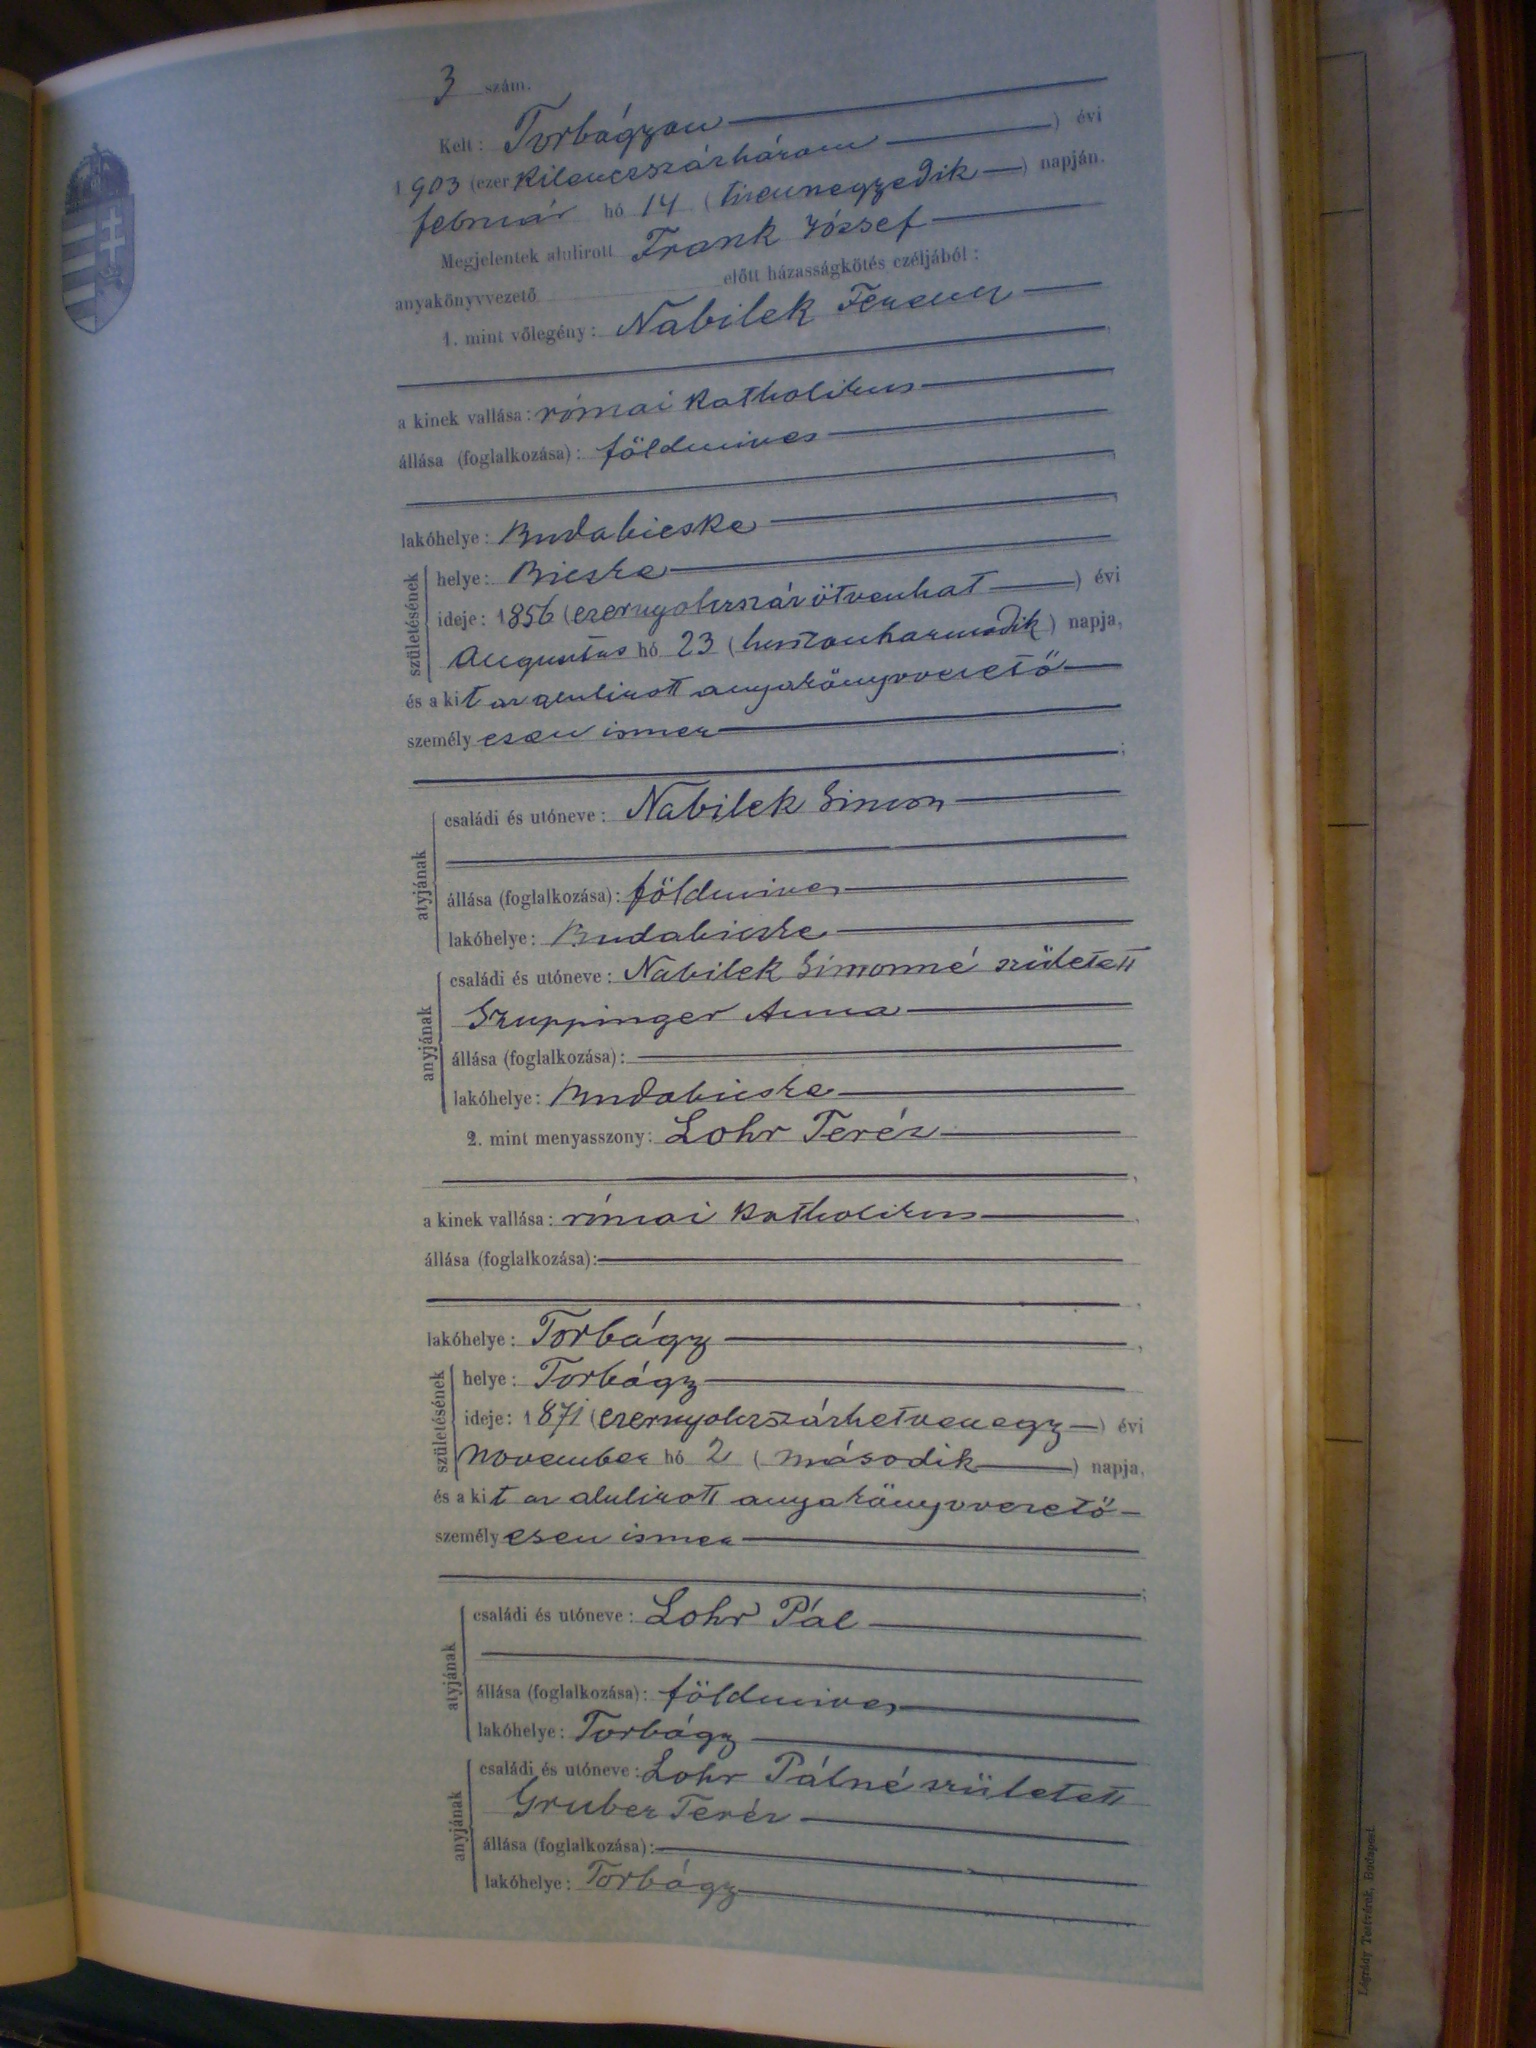 3 szám.
Kelt: Torbágyon
1903 (ezer kilenczszázhárom) évi
február hó 14 (tizennegyedik) napján.
Megjelentek alulirott Frank József
anyakönyvvezető előtt házasságkötés czéljából:
1. mint vőlegény: Nabilek Ferencz
a kinek vallása: római katholikus
állása (foglalkozása): földmives
lakóhelye: Budabicske
születésének
helye: Bicske
ideje: 1856 (ezernyolczszáz ötvenhat) évi
Augusztus hó 23 (huszonharmadik) napja,
és a kit az alulirott anyakönyvvezető
személyesen ismer
atyjának
családi és utóneve: Nabilek Simon
állása (foglalkozása): földmives
lakóhelye: Budabicske
anyjának
családi és utóneve: Nabilek Simonné született
Gruppinger Anna
állása (foglalkozása):
lakóhelye: Budabicske
2. mint menyasszony: Lohr Teréz
a kinek vallása: római katholikus
állása (foglalkozása):
lakóhelye: Torbágy
születésének
helye: Torbágy
ideje: 1871 (ezernyolczszázhetvenegy) évi
November hó 2 (második) napja,
és a kit az alulirott anyakönyvvezető
személyesen ismer
atyjának
családi és utóneve: Lohr Pál
állása (foglalkozása): földmives
lakóhelye: Torbágy
anyjának
családi és utóneve: Lohr Pálné született
Gruber Teréz
állása (foglalkozása):
lakóhelye: Torbágy
Légrády Testvérek, Budapest